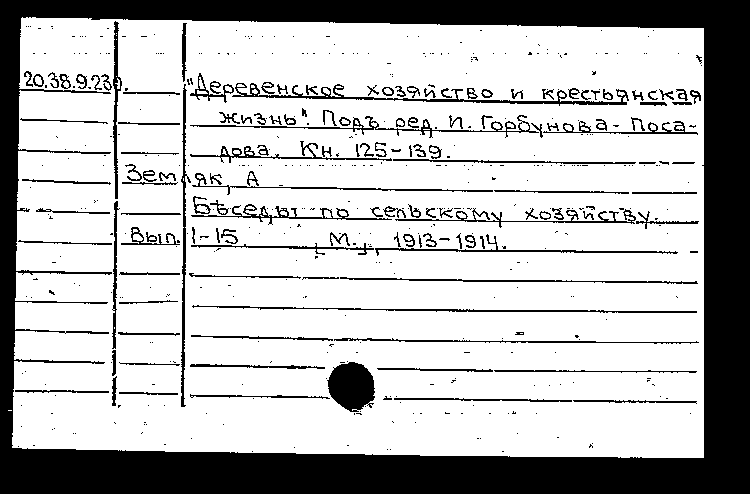 20.38.9.230. "Деревенское хозяйство и крестьянская
жизнь". Подъ ред. И. Горбунова-Поса-
дова. Кн. 125-139.
Земляк, А
Бѣседы по сельскому хозяйству.
Вып. 1-15 [М.], 1913-1914.